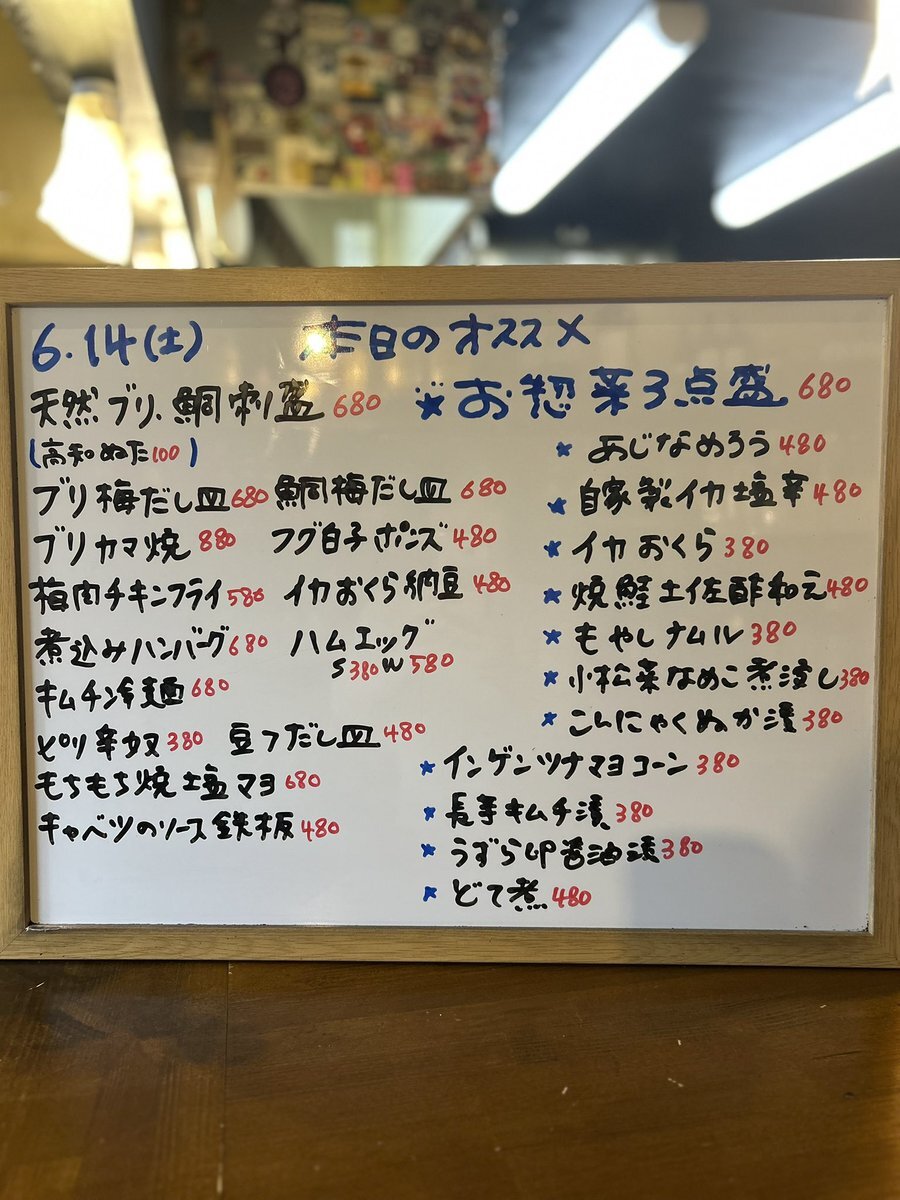 6.14(土) 本日のオススメ
天然ブリ、鯛刺盛 680
(高知ぬた100)
ブリ梅だし皿 680 鯛梅だし皿 680
ブリカマ焼 880 フグ白子ポンズ 480
梅肉チキンフライ 580 イカおくら納豆 480
煮込みハンバーグ 680 ハムエッグ
S380 W580
キムチ冷麺 680
ピリ辛奴 380 豆フだし皿 480
もちもち焼塩マヨ 680
キャベツのソース鉄板 480
★お惣菜3点盛 680
★ あじなめろう 480
★ 自家製イカ塩辛 480
★ イカおくら 380
★ 焼鮭土佐酢和え 480
★ もやしナムル 380
★ 小松菜なめこ煮浸し 380
★ こんにゃくぬか漬 380
★ インゲンツナマヨコーン 380
★ 長芋キムチ漬 380
★ うずら卵醤油漬 380
★ どて煮 480